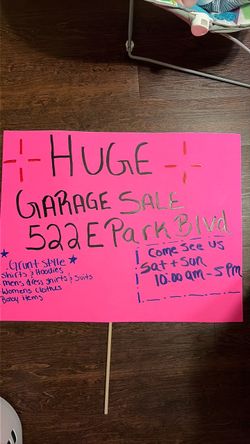 HUGE
GARAGE SALE
522 E Park Blvd
Grunt Style
Shirts & Hoodies
Mens dress shirts & suits
Womens Clothes
Baby Items
Come see us
Sat + Sun
10:00 am - 5 pm